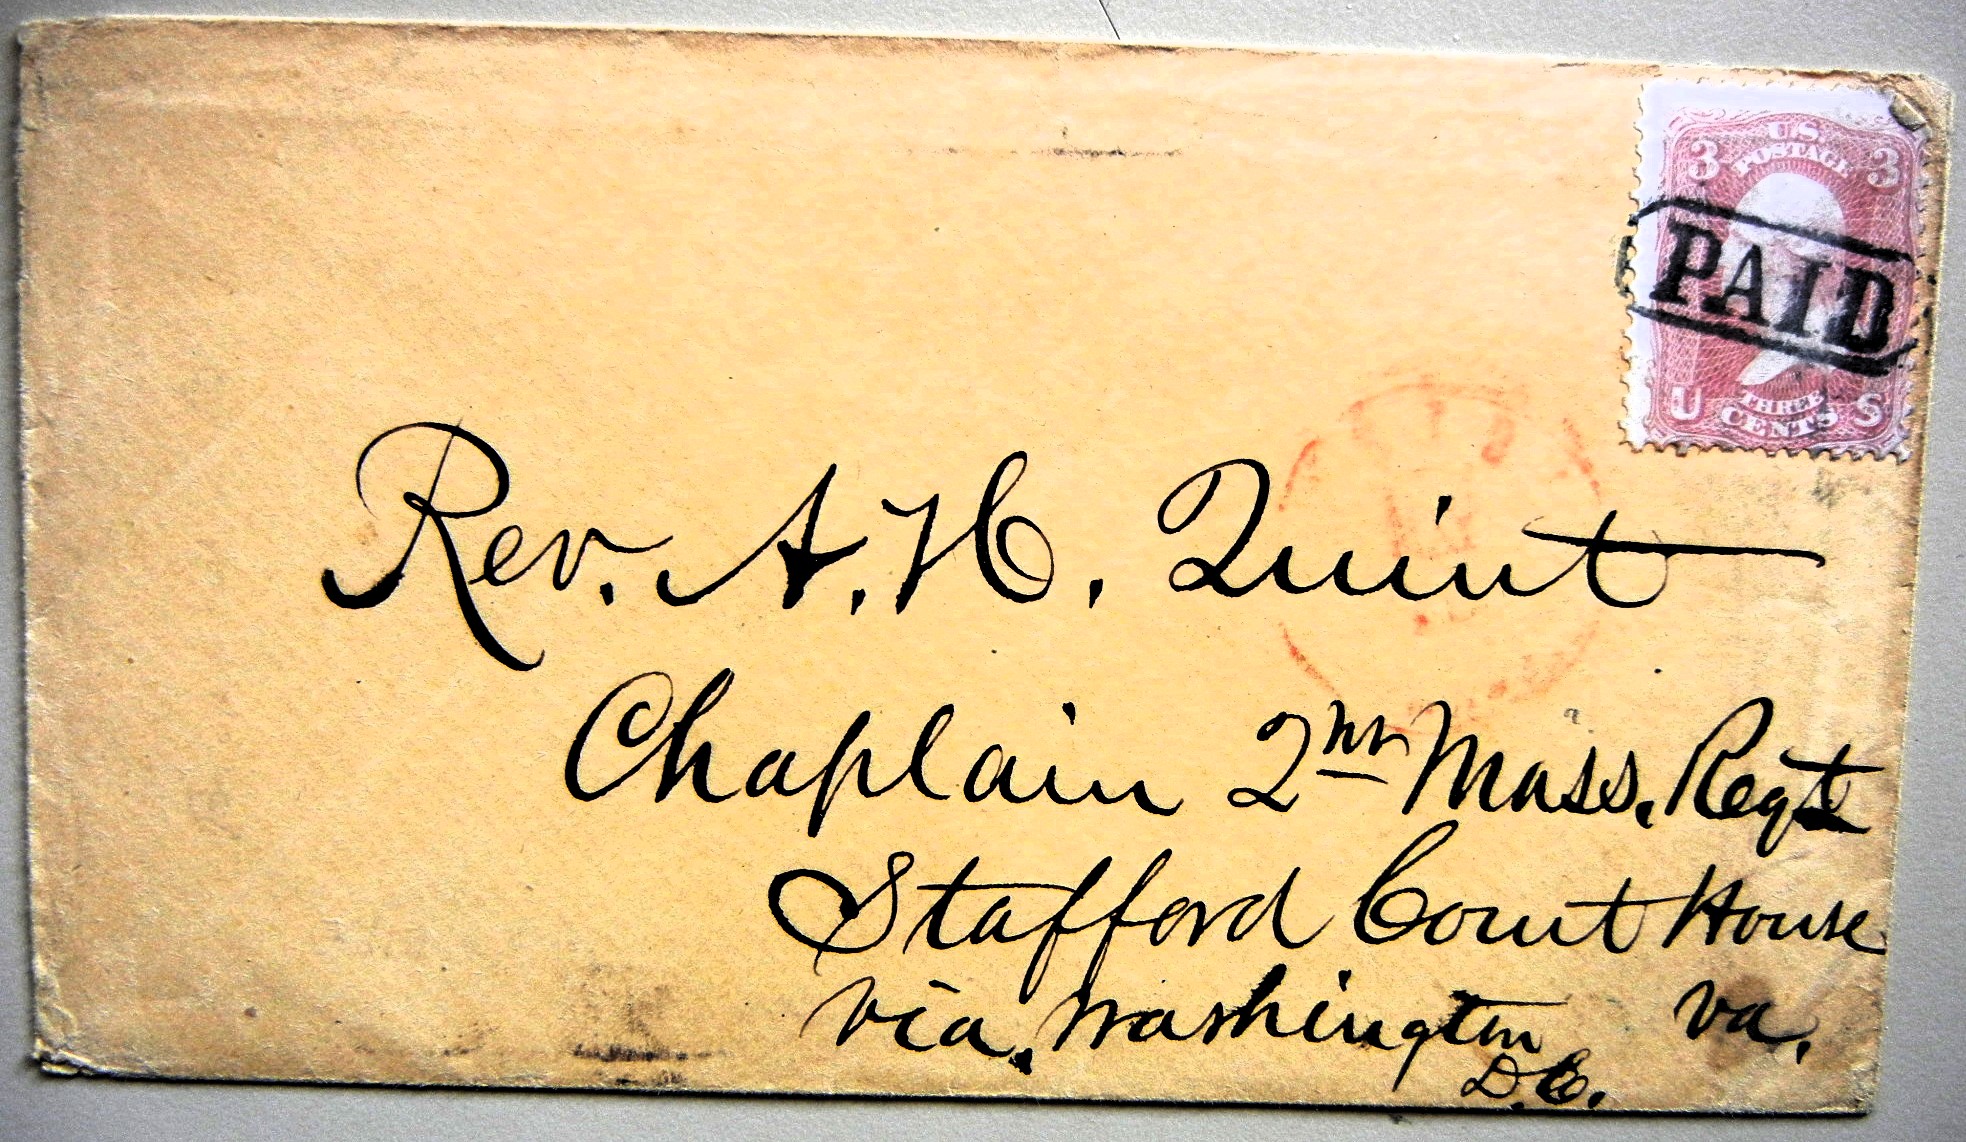 U.S.
POSTAGE
3 3
PAID
U THREE S
CENTS
Rev. A. H. Quint
Chaplain 2nd Mass. Regt
Stafford Court House
via. Washington Va.
D.C.